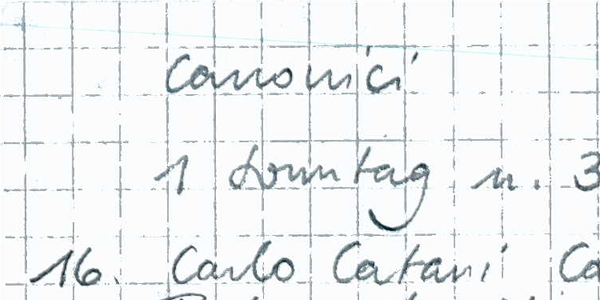 Canonici
1 Sonntag n. 3
16. Carlo Catani Ca